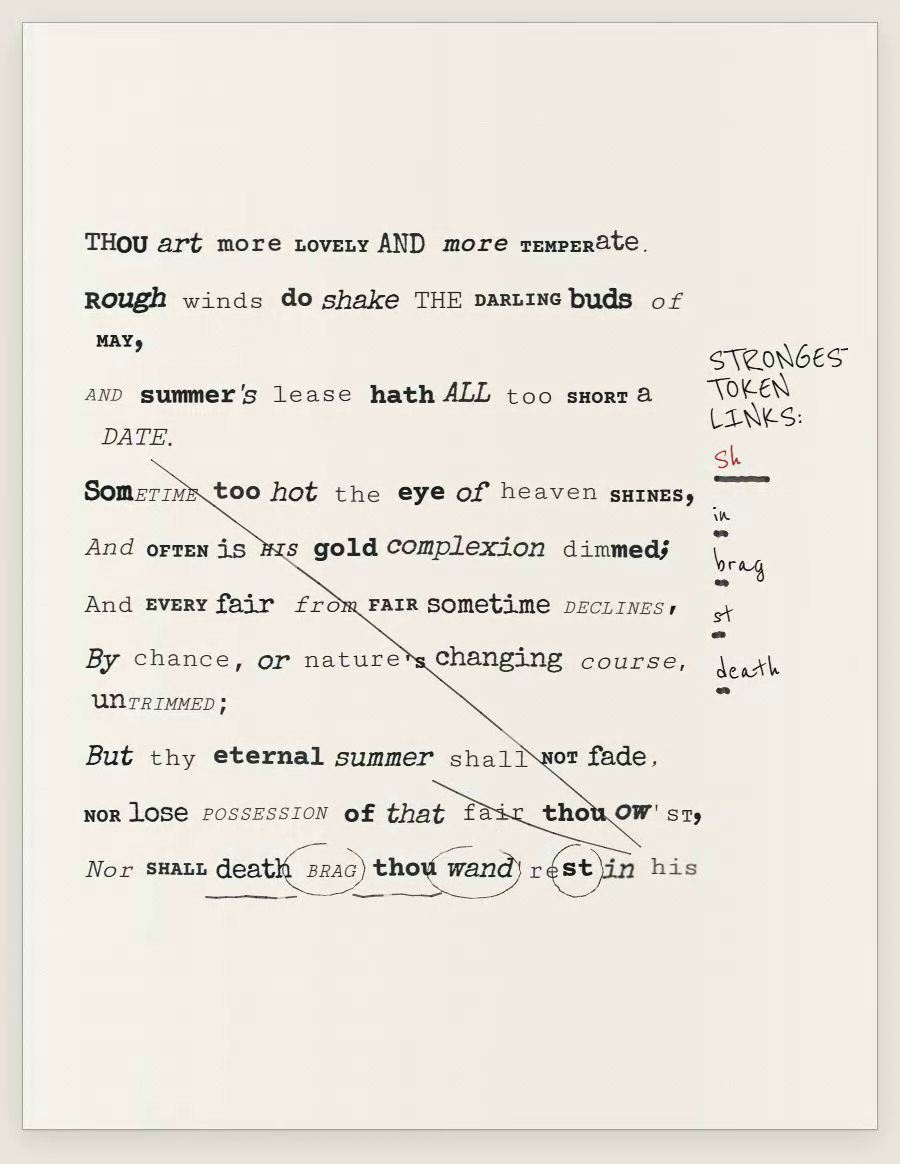 THOU art more LOVELY AND more TEMPERate.
Rough winds do shake THE DARLING buds of
MAY,
AND summer's lease hath ALL too SHORT a
DATE.
SomETIME too hot the eye of heaven SHINES,
And OFTEN is HIS gold complexion dimmed;
And EVERY fair from FAIR sometime DECLINES,
By chance, or nature's changing course,
unTRIMMED;
But thy eternal summer shall NOT fade,
NOR lose POSSESSION of that fair thou OW'ST,
Nor SHALL death BRAG thou wand'rest in his
STRONGEST
TOKEN
LINKS:
Sh
in
brag
st
death